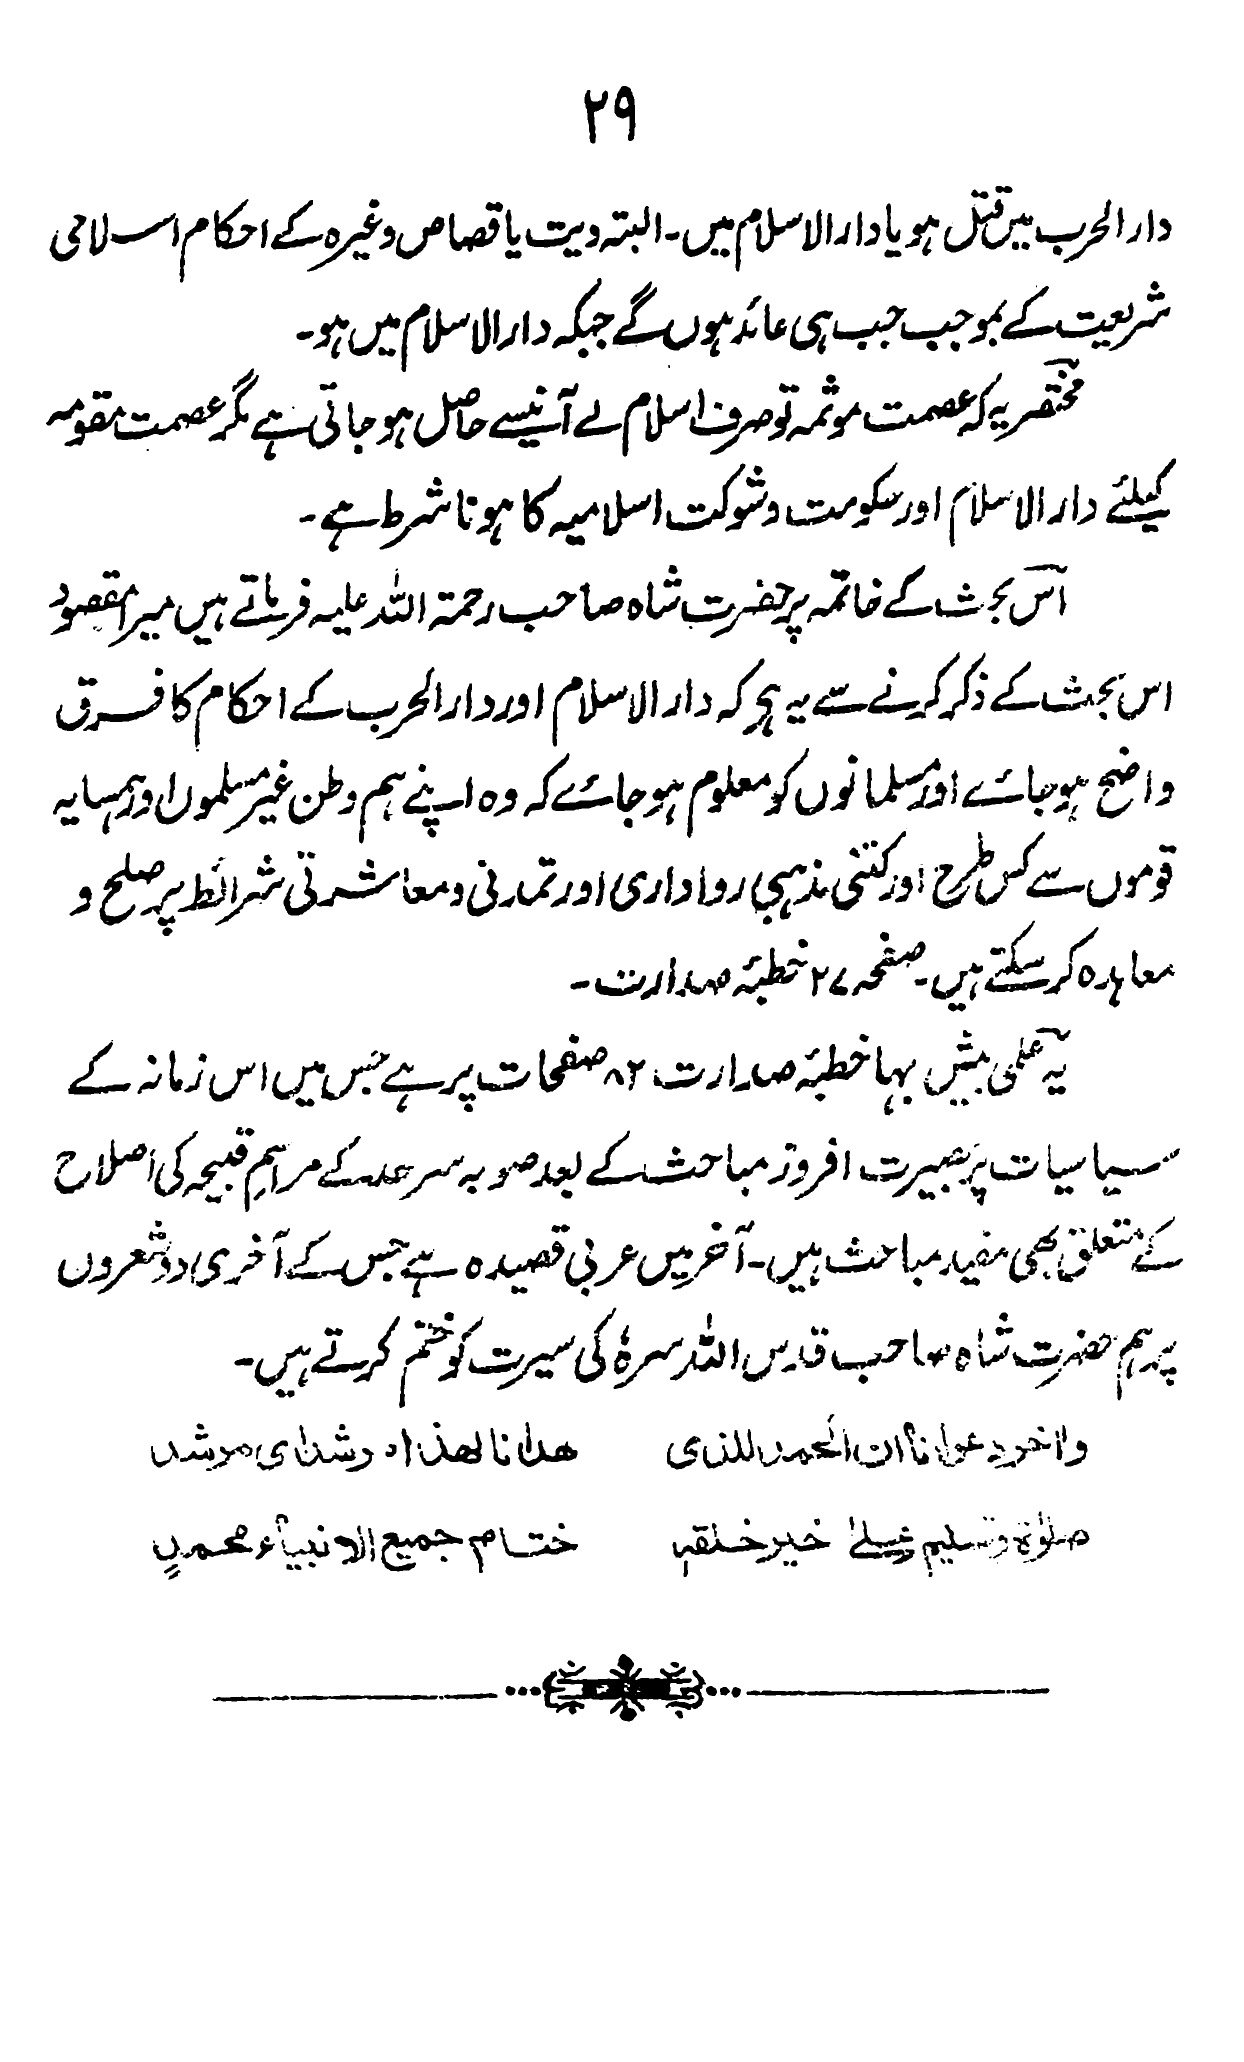 ۲۹
دار الحرب میں قتل ہو یا دار الاسلام میں۔ البتہ دیت یا قصاص وغیرہ کے احکام اسلامی
شریعت کے بموجب جب ہی عائد ہوں گے جبکہ دار الاسلام میں ہو۔
مختصر یہ کہ عصمت موثمہ تو صرف اسلام لے آنیسے حاصل ہو جاتی ہے مگر عصمت مقومہ
کیلئے دار الاسلام اور حکومت و شوکت اسلامیہ کا ہونا شرط ہے۔
اس بحث کے خاتمہ پر حضرت شاہ صاحب رحمۃ اللہ علیہ فرماتے ہیں میرا مقصود
اس بحث کے ذکر کرنے سے یہ ہے کہ دار الاسلام اور دار الحرب کے احکام کا فرق
واضح ہو جائے اور مسلمانوں کو معلوم ہو جائے کہ وہ اپنے ہم وطن غیر مسلموں اور ہمسایہ
قوموں سے کس طرح اور کتنی مذہبی رواداری اور تمدنی و معاشرتی شرائط پر صلح و
معاہدہ کر سکتے ہیں۔ صفحہ ۲۷ خطبۂ صدارت۔
یہ علمی بیش بہا خطبۂ صدارت ۸۲ صفحات پر ہے جس میں اس زمانہ کے
سیاسیات پر بصیرت افروز مباحث کے بعد صوبہ سرحد کے مراسم قبیحہ کی اصلاح
کے متعلق بھی مفید مباحث ہیں۔ آخر میں عربی قصیدہ ہے جس کے آخری دو شعروں
پر ہم حضرت شاہ صاحب قدس اللہ سرہٗ کی سیرت کو ختم کرتے ہیں۔
واٰخر دعوانا ان الحمد للذی ھدانا لھذا رشدا ای مرشد
صلوٰۃ وتسلیم علےٰ خیر خلقہٖ ختام جمیع الانبیاء محمدٍ